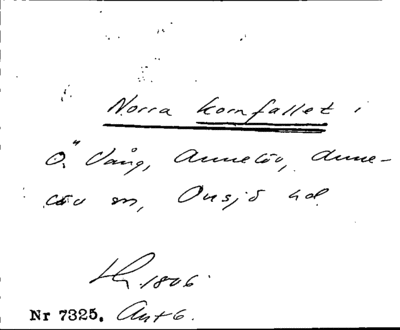 Norra kornfallet i
Ö. Vång, Annelöv, Anne-
löv sn, Onsjö hd.
1806
Nr 7325. Akt 6.